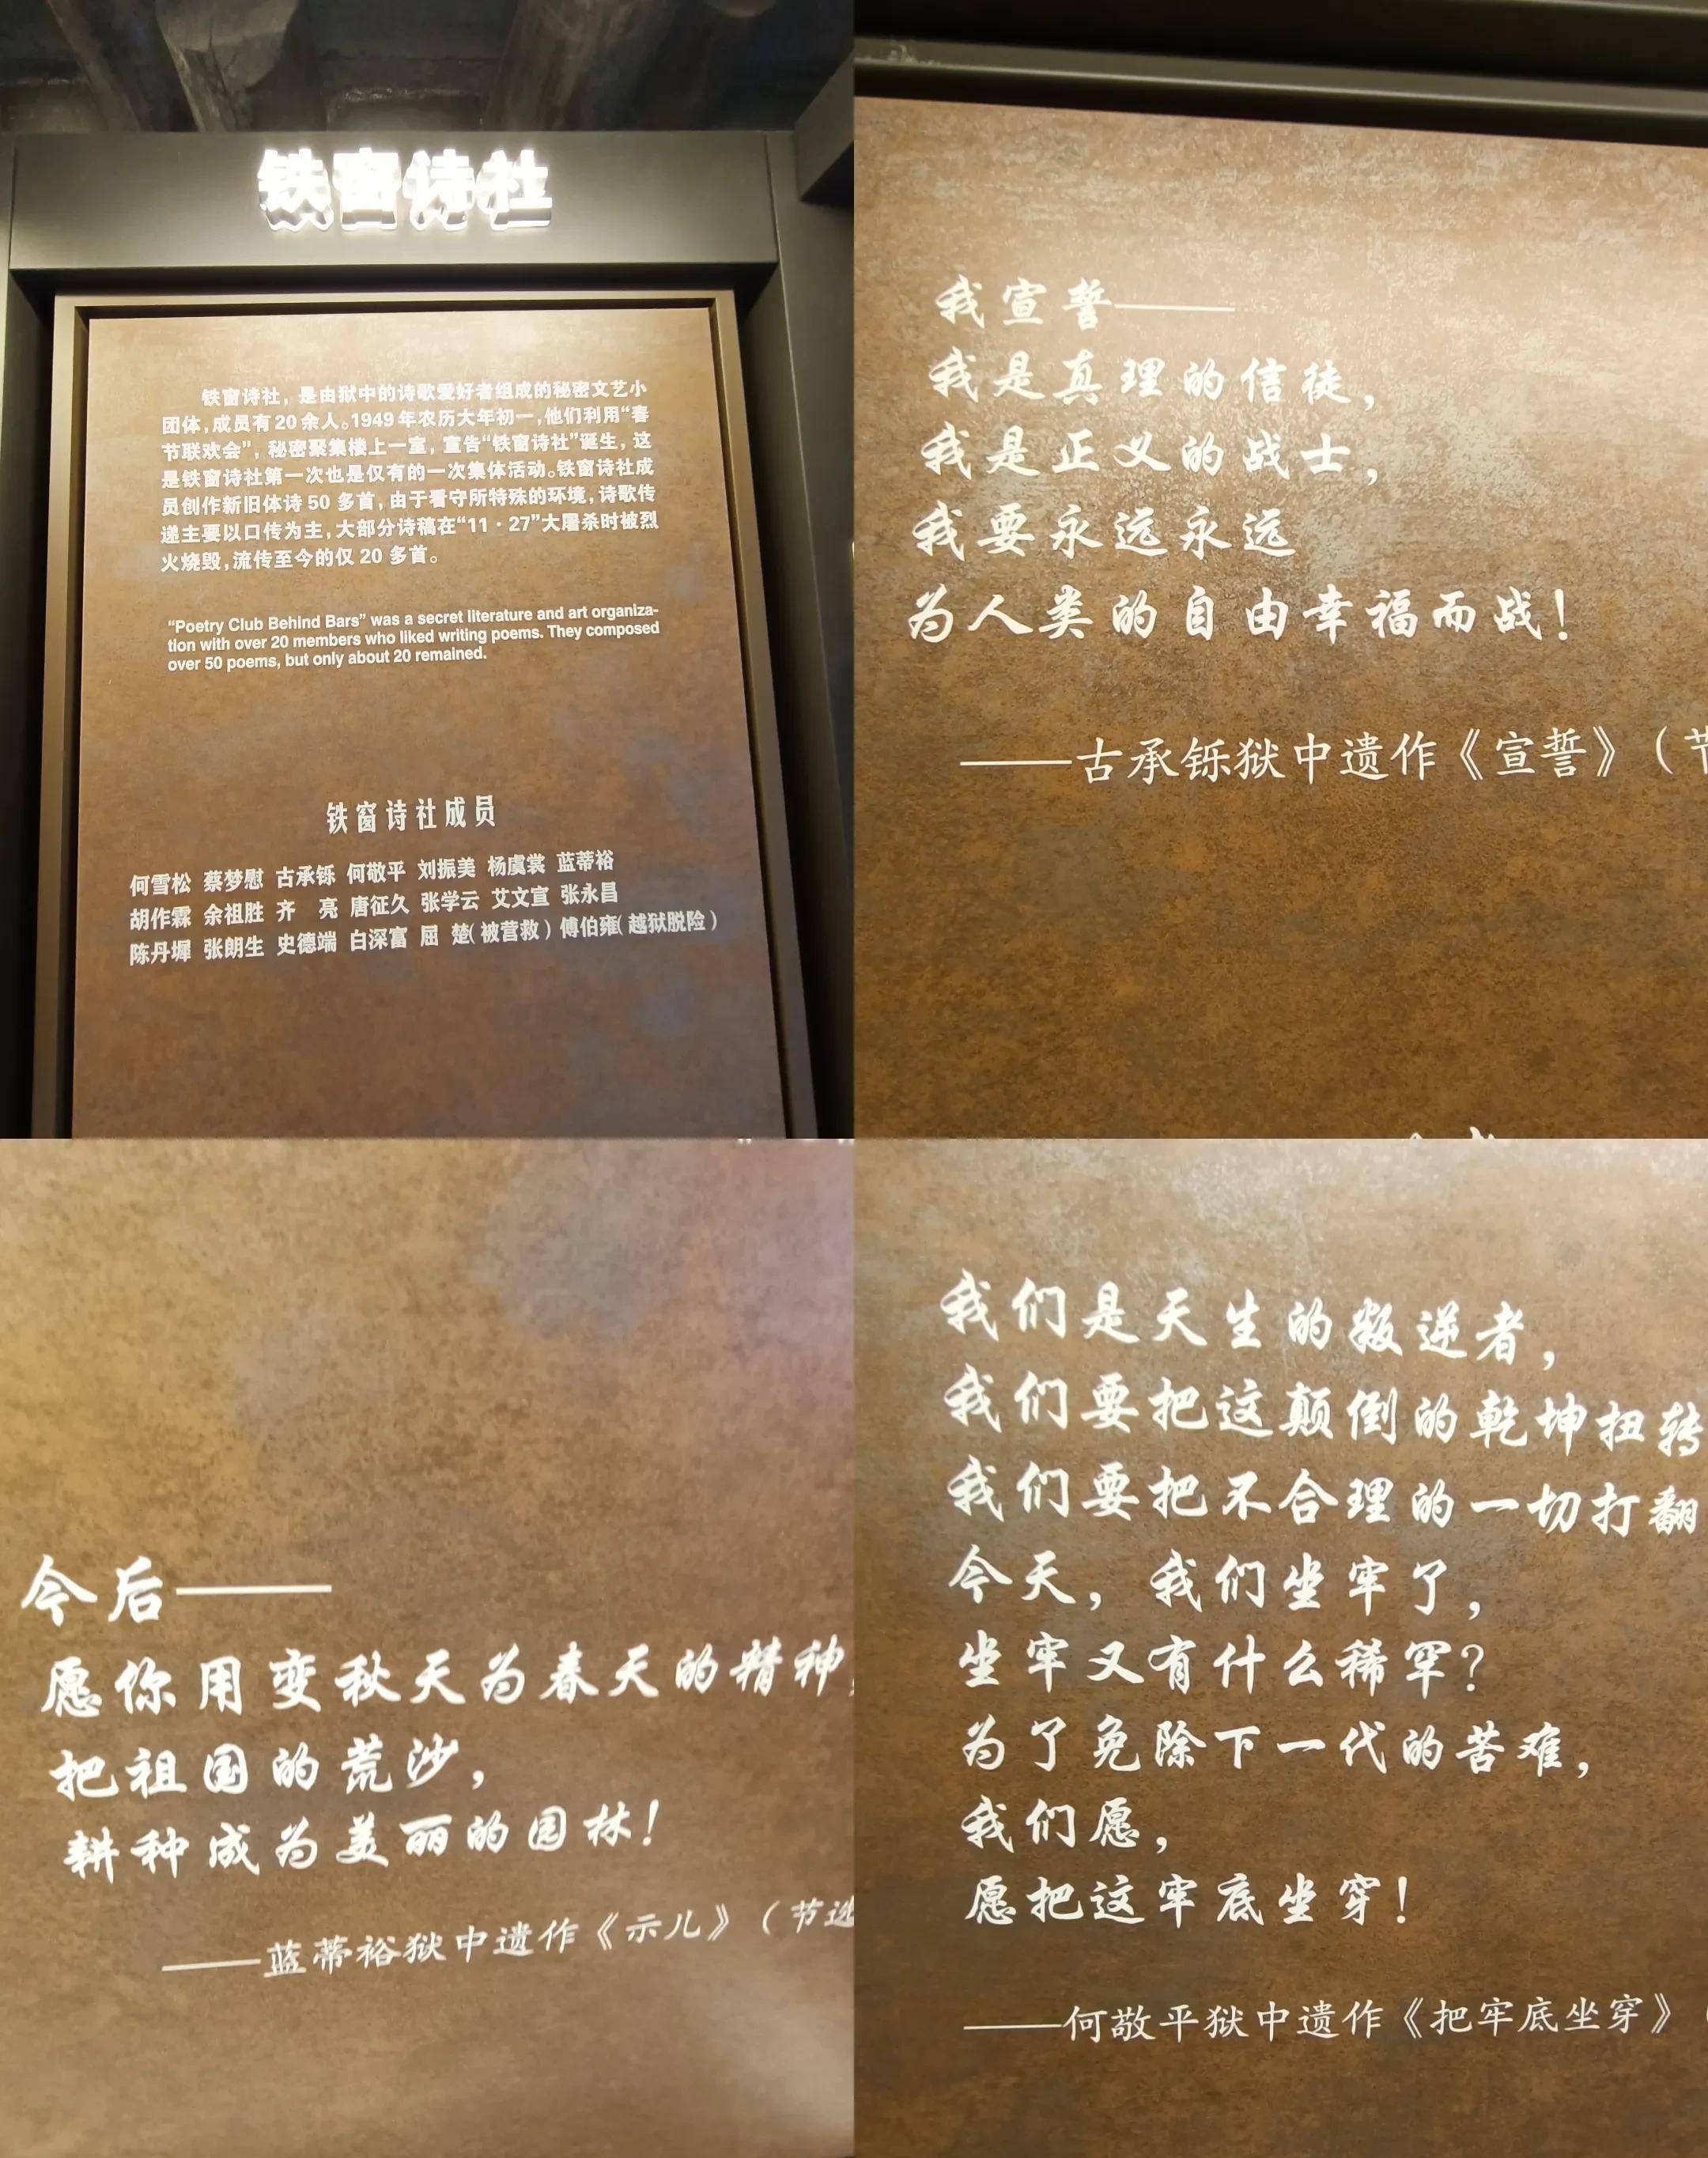 铁窗诗社
铁窗诗社，是由狱中的诗歌爱好者组成的秘密文艺小
团体，成员有20余人。1949年农历大年初一，他们利用“春
节联欢会”，秘密聚集楼上一室，宣告“铁窗诗社”诞生，这
是铁窗诗社第一次也是仅有的一次集体活动。铁窗诗社成
员创作新旧体诗50多首，由于看守所特殊的环境，诗歌传
递主要以口传为主，大部分诗稿在“11·27”大屠杀时被烈
火烧毁，流传至今的仅20多首。
“Poetry Club Behind Bars” was a secret literature and art organiza-
tion with over 20 members who liked writing poems. They composed
over 50 poems, but only about 20 remained.
铁窗诗社成员
何雪松 蔡梦慰 古承铄 何敬平 刘振美 杨虞裳 蓝蒂裕
胡作霖 余祖胜 齐 亮 唐征久 张学云 艾文宣 张永昌
陈丹墀 张朗生 史德端 白深富 屈 楚（被营救）傅伯雍（越狱脱险）
我宣誓——
我是真理的信徒，
我是正义的战士，
我要永远永远
为人类的自由幸福而战！
——古承铄狱中遗作《宣誓》（节
今后——
愿你用变秋天为春天的精神，
把祖国的荒沙，
耕种成为美丽的园林！
——蓝蒂裕狱中遗作《示儿》（节选
我们是天生的叛逆者，
我们要把这颠倒的乾坤扭转
我们要把不合理的一切打翻
今天，我们坐牢了，
坐牢又有什么稀罕？
为了免除下一代的苦难，
我们愿，
愿把这牢底坐穿！
——何敬平狱中遗作《把牢底坐穿》